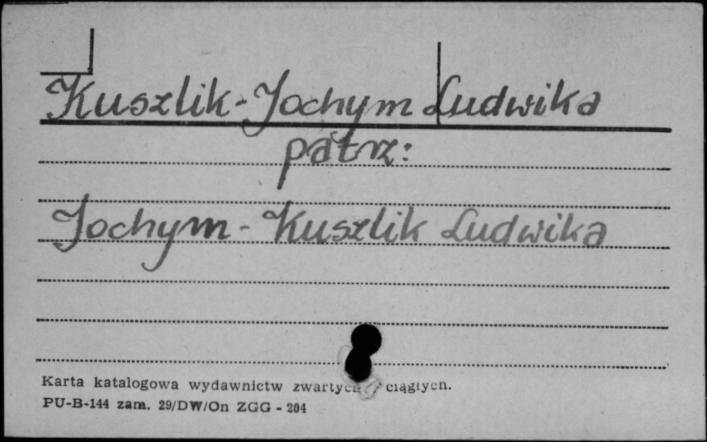 Kuszlik-Jochym Ludwika
patrz:
Jochym-Kuszlik Ludwika
Karta katalogowa wydawnictw zwartych ciągłych.
PU-B-144 zam. 29/DW/On ZGG - 204